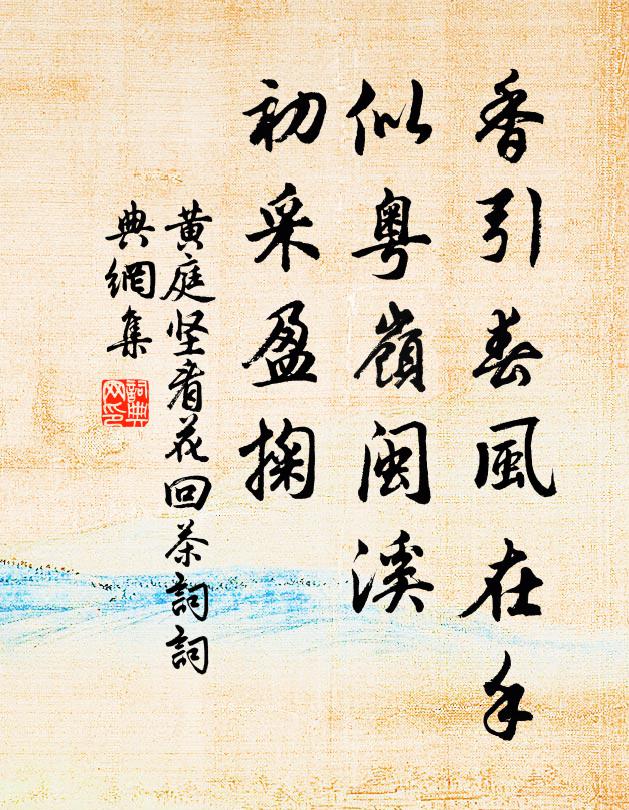 香引春風在手
似粤嶺閩溪
初采盈掬
黄庭坚看花回茶詞詞
典網集
詞典
网印